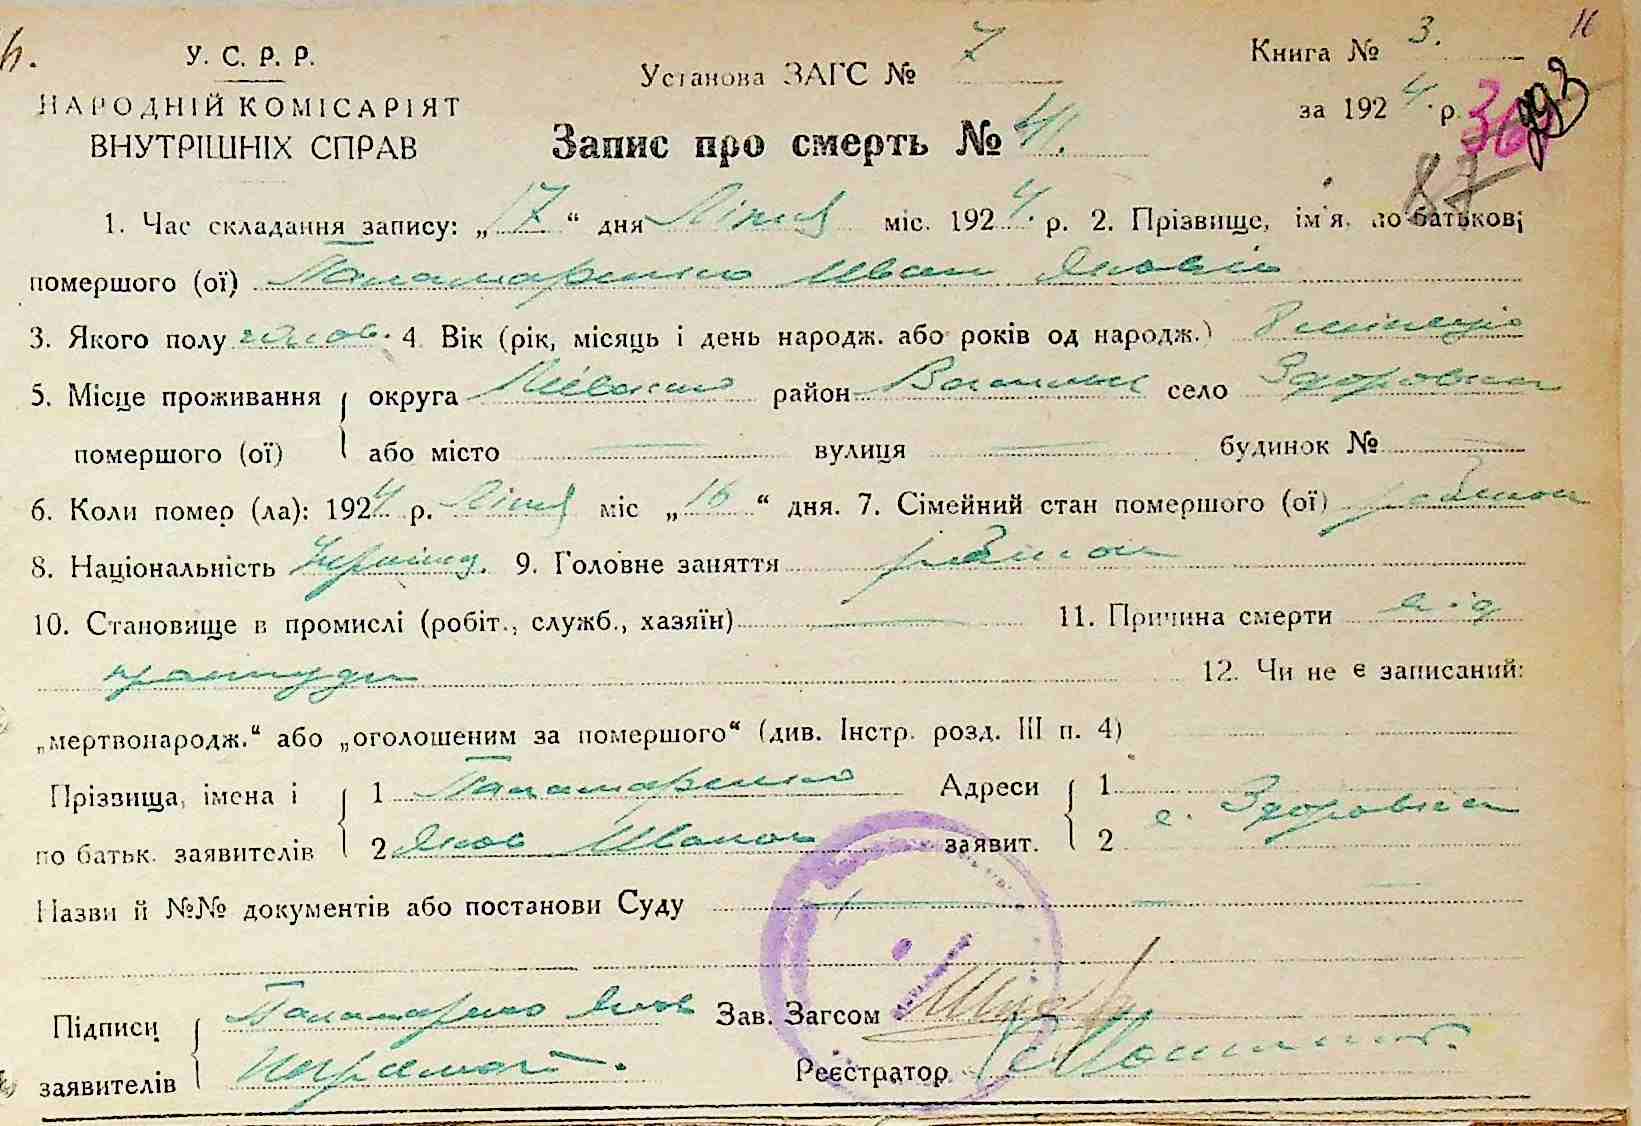 У. С. Р. Р.
НАРОДНІЙ КОМІСАРІЯТ
ВНУТРІШНІХ СПРАВ
Установа ЗАГС № 7
Книга № 3.
за 1924 р.
16
Запис про смерть № 41.
87
1. Час складання запису: „17“ дня Липця міс. 1924. р. 2. Прізвище, ім'я, по батькові
помершого (ої) Панамаренко Иван Яковів
3. Якого полу чолов. 4. Вік (рік, місяць і день народж. або років од народж.) 8 місяців
5. Місце проживання округа Київська район Васильк село Здоровка
помершого (ої) або місто — вулиця — будинок № —
6. Коли помер (ла): 1924 р. Липця міс „16“ дня. 7. Сімейний стан помершого (ої)
8. Національність Україн. 9. Головне заняття
10. Становище в промислі (робіт., служб., хазяїн) — 11. Причина смерти від
простуди
12. Чи не є записаний:
„мертвонародж.“ або „оголошеним за помершого“ (див. Інстр. розд. III п. 4)
Прізвища, імена і 1 Панамаренко Адреси 1
по батьк. заявителів 2 Яков Иванов заявит. 2 с. Здоровка
Назви й №№ документів або постанови Суду —
Підписи Панамаренко Яков Зав. Загсом
заявителів Реєстратор